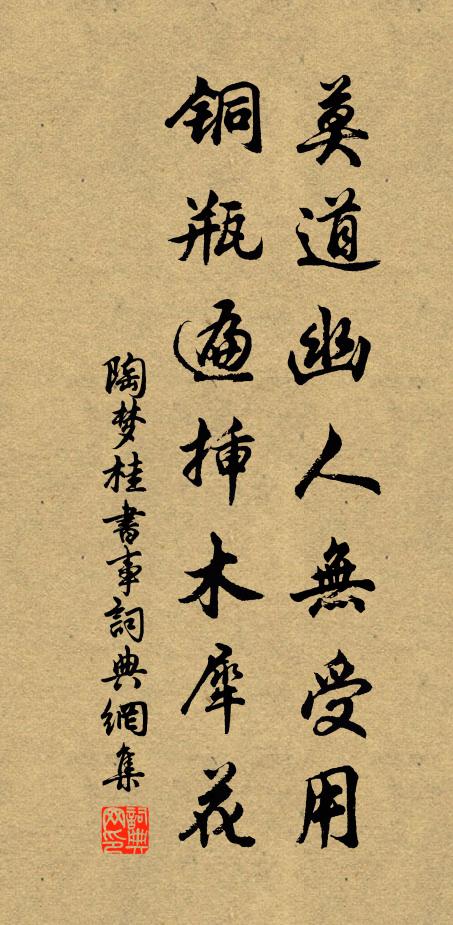 莫道幽人無受用
銅瓶遍揷木犀花
陶梦桂書事詞典網集
詞典網印